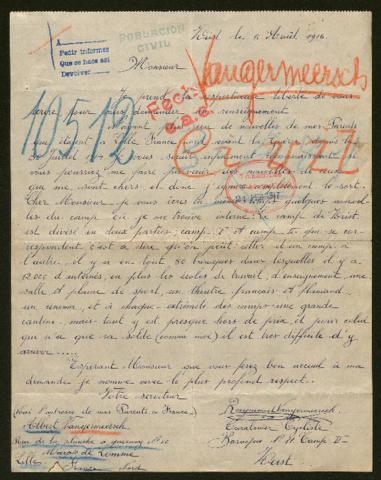 A
Pedir informes
Que se hace así
Devolver
POBLACIÓN
CIVIL
Zeist le 6 Août 1916.
Monsieur
Vangermeersch
Je prend la respectueuse liberté de vous
écrire pour vous demander des renseignement
de nouvelles de mes Parents
10512
Lille France
de Juillet
vous seriez infiniment reconnaissant si
vous pourriez me faire parvenir des nouvelles de ceux
que me sont chers, et dont j'ignore complètement le sort.
Cher Monsieur, je vous écris
quelques nouvelles
du camp où je me trouve interné: le camp de Zeist
est divisé en deux parties; camp I et camp II qui se cor-
respondent c'est à dire qu'on peut aller d'un camp à
l'autre, il y a en tout 80 baraques dans lesquelles il y a
12.000 d'internés, en plus les écoles de travail, d'enseignement, une
salle et plaine de sport, un théâtre français et flamand,
un cinéma, et à chaque extrémité des camps une grande
cantine, mais tout y est presque hors de prix, et pour celui
qui n'a que sa solde (comme moi) il est très difficile d'y
arriver.....
Espérant Monsieur que vous ferez bon accueil à ma
demande je nomme avec le plus profond respect..
Votre serviteur
Voici l'adresse de mes Parents en France
Albert Vangermeersch
Rue de la planche à quesnoy No 20
Marais de Lomme
Lille
France Nord
Raymond Vangermeersch
Carabinier Cycliste
Baraque No 4 Camp II
Zeist